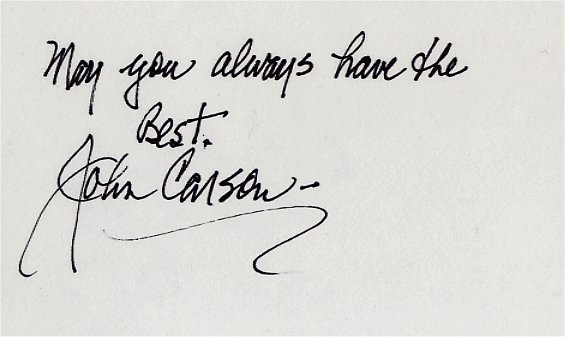 May you always have the
Best.
John Carson